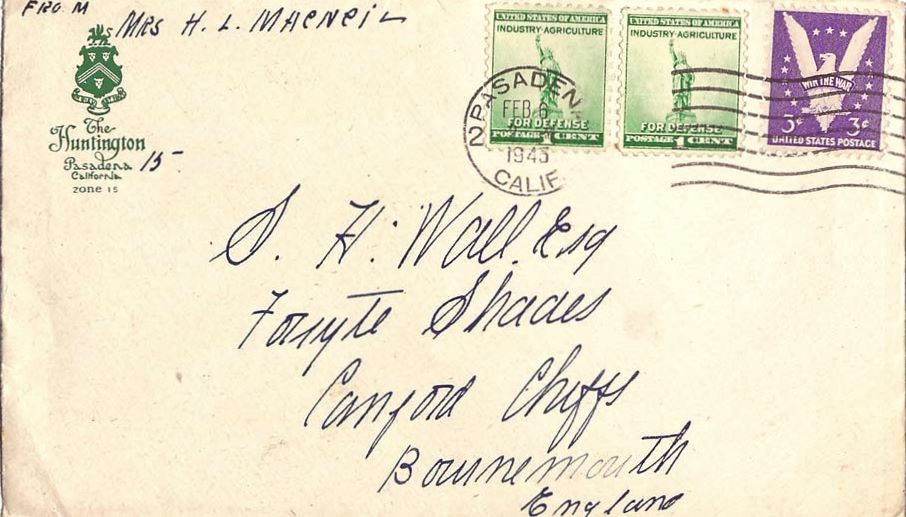 FROM
MRS H. L. MACNEIL
The
Huntington
Pasadena 15
California
ZONE 15
UNITED STATES OF AMERICA
INDUSTRY·AGRICULTURE
FOR DEFENSE
POSTAGE 1 CENT
UNITED STATES OF AMERICA
INDUSTRY·AGRICULTURE
FOR DEFENSE
POSTAGE 1 CENT
WIN THE WAR
3¢ 3¢
UNITED STATES POSTAGE
PASADEN
2
FEB 6
1943
CALIF
S. H. Wall. Esq
Forsyte Shades
Canford Cliffs
Bournemouth
England